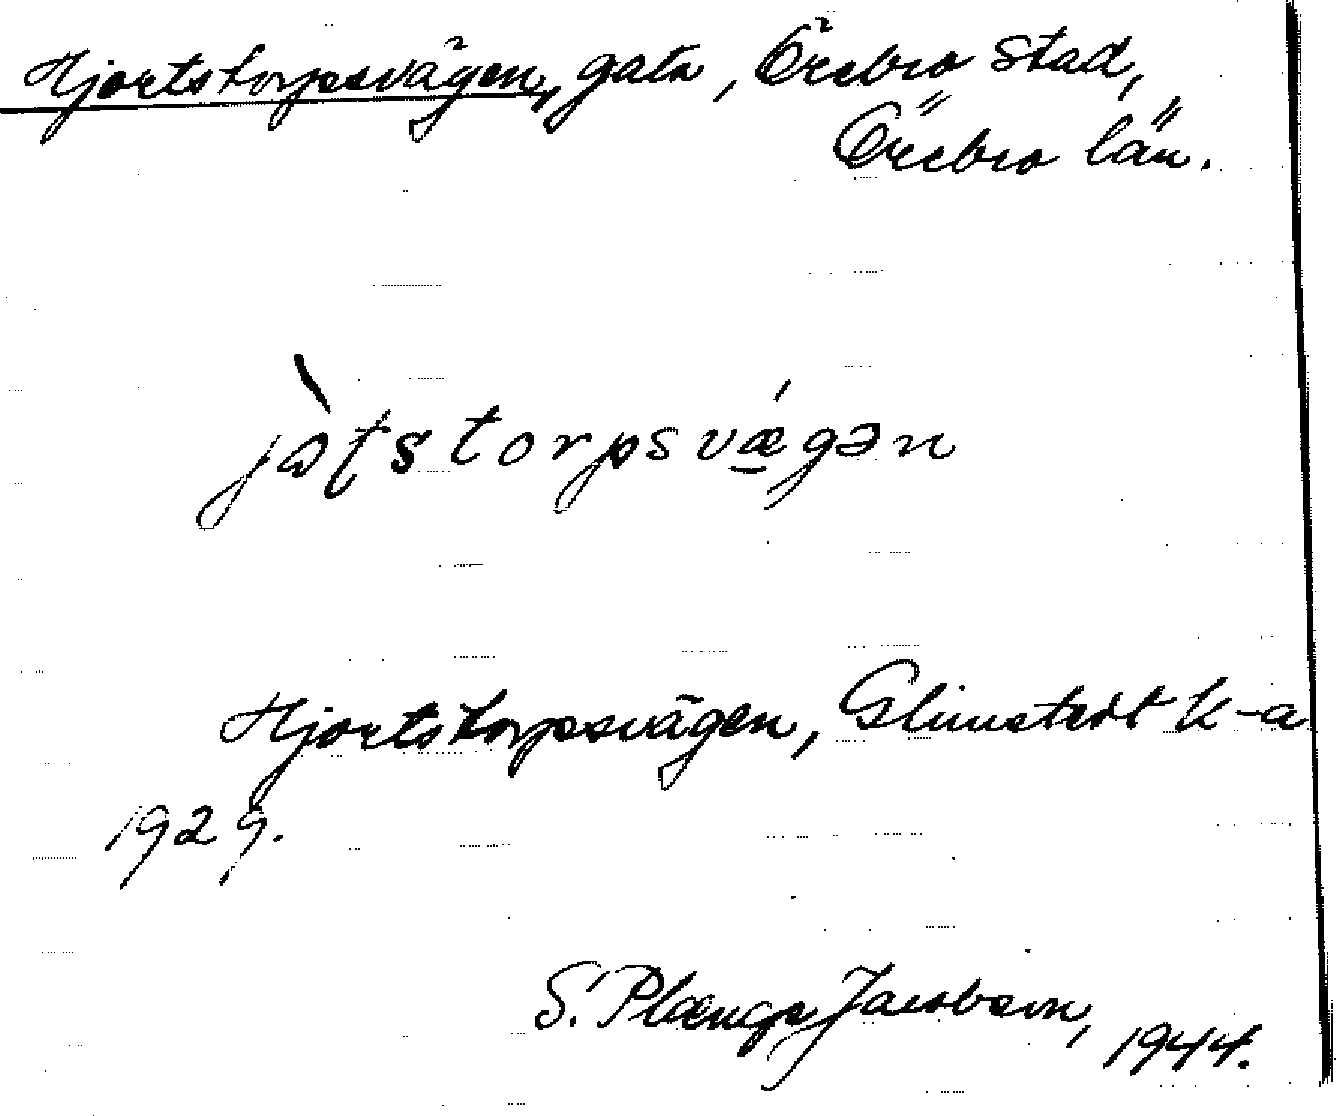 Hjortstorpsvägen, gata, Örebro stad,
Örebro län.
jɑ̀ʈstorpsvǽgən
Hjortstorpsvägen, Glimstedt k-a
1929.
S. Plænge Jacobson, 1944.